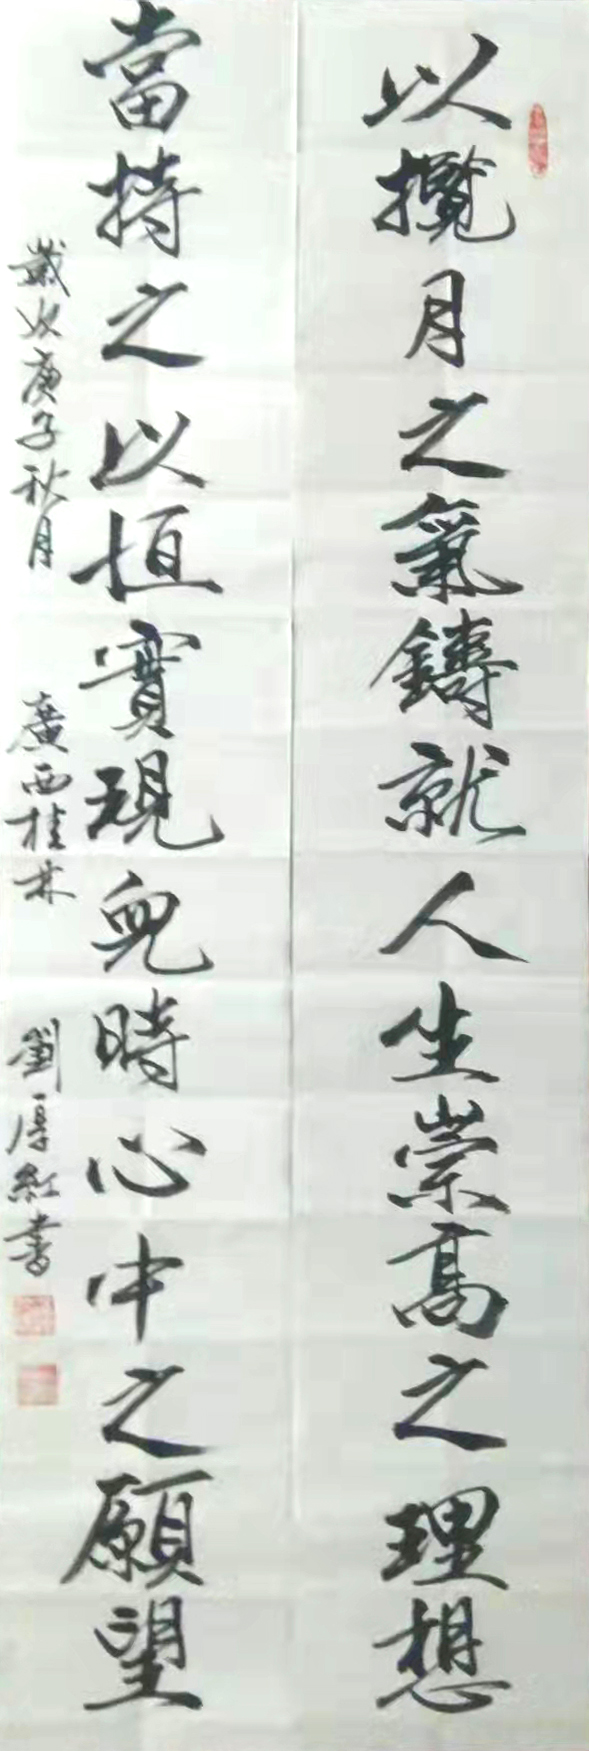 以攬月之氣鑄就人生崇高之理想
當持之以恒實現兒時心中之願望
歲次庚子秋月 廣西桂林 劉厚紅書